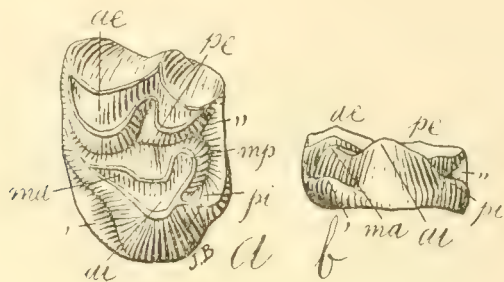 ae
pe
"
mp
ma
pi
'
ai
J.B
a
ae
pe
"
pi
'
ma
ai
b